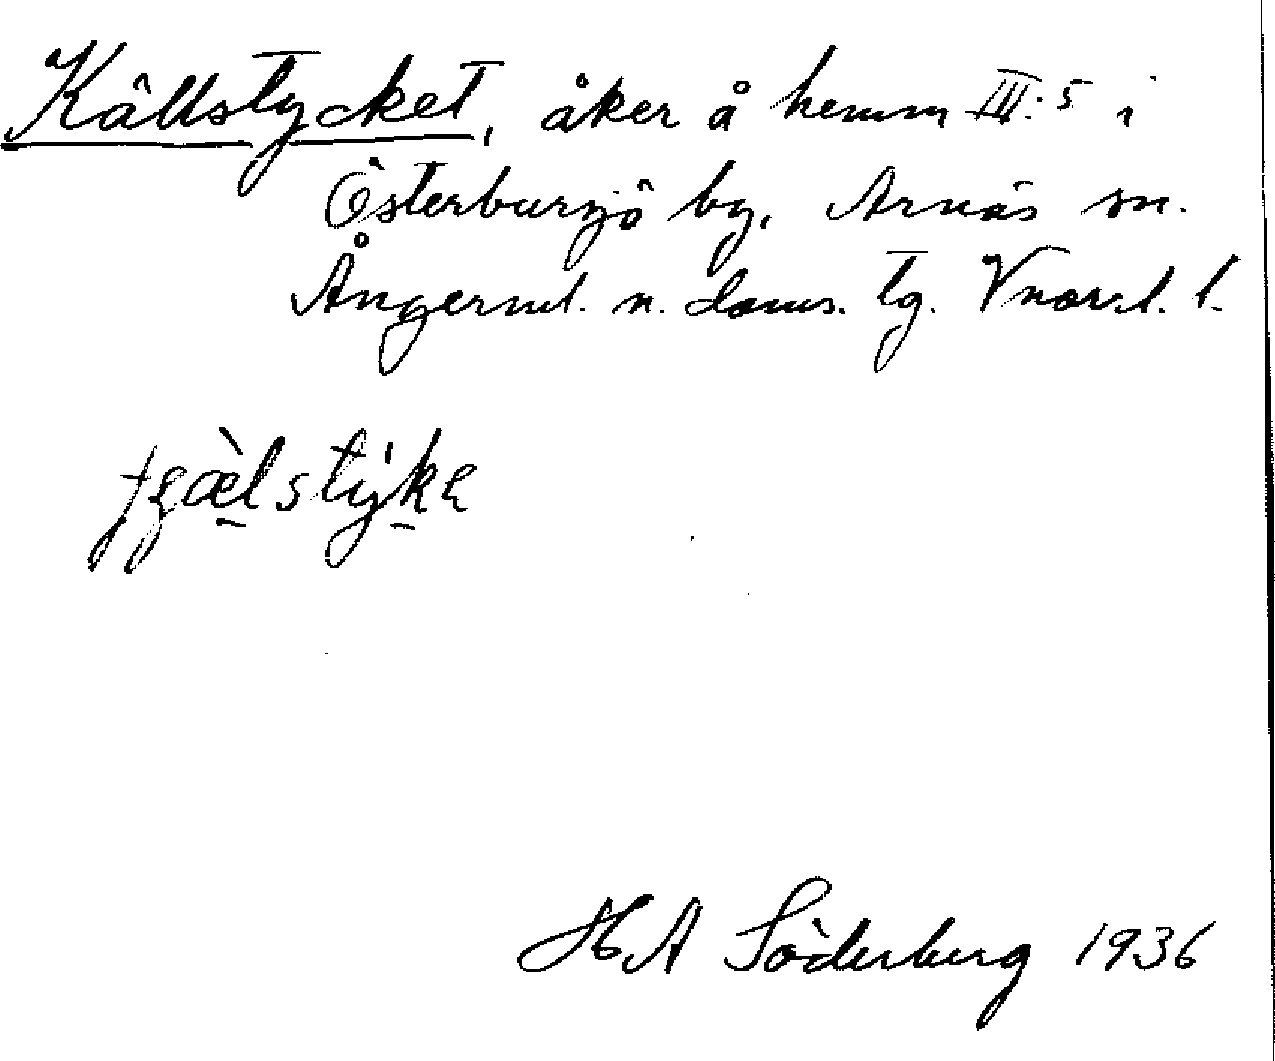 Källstycket, åker å hemm III:5 i
Österbursjö by, Arnäs sn.
Ångerml. n. doms. tg. Vnorrl. l.
H A Söderberg 1936